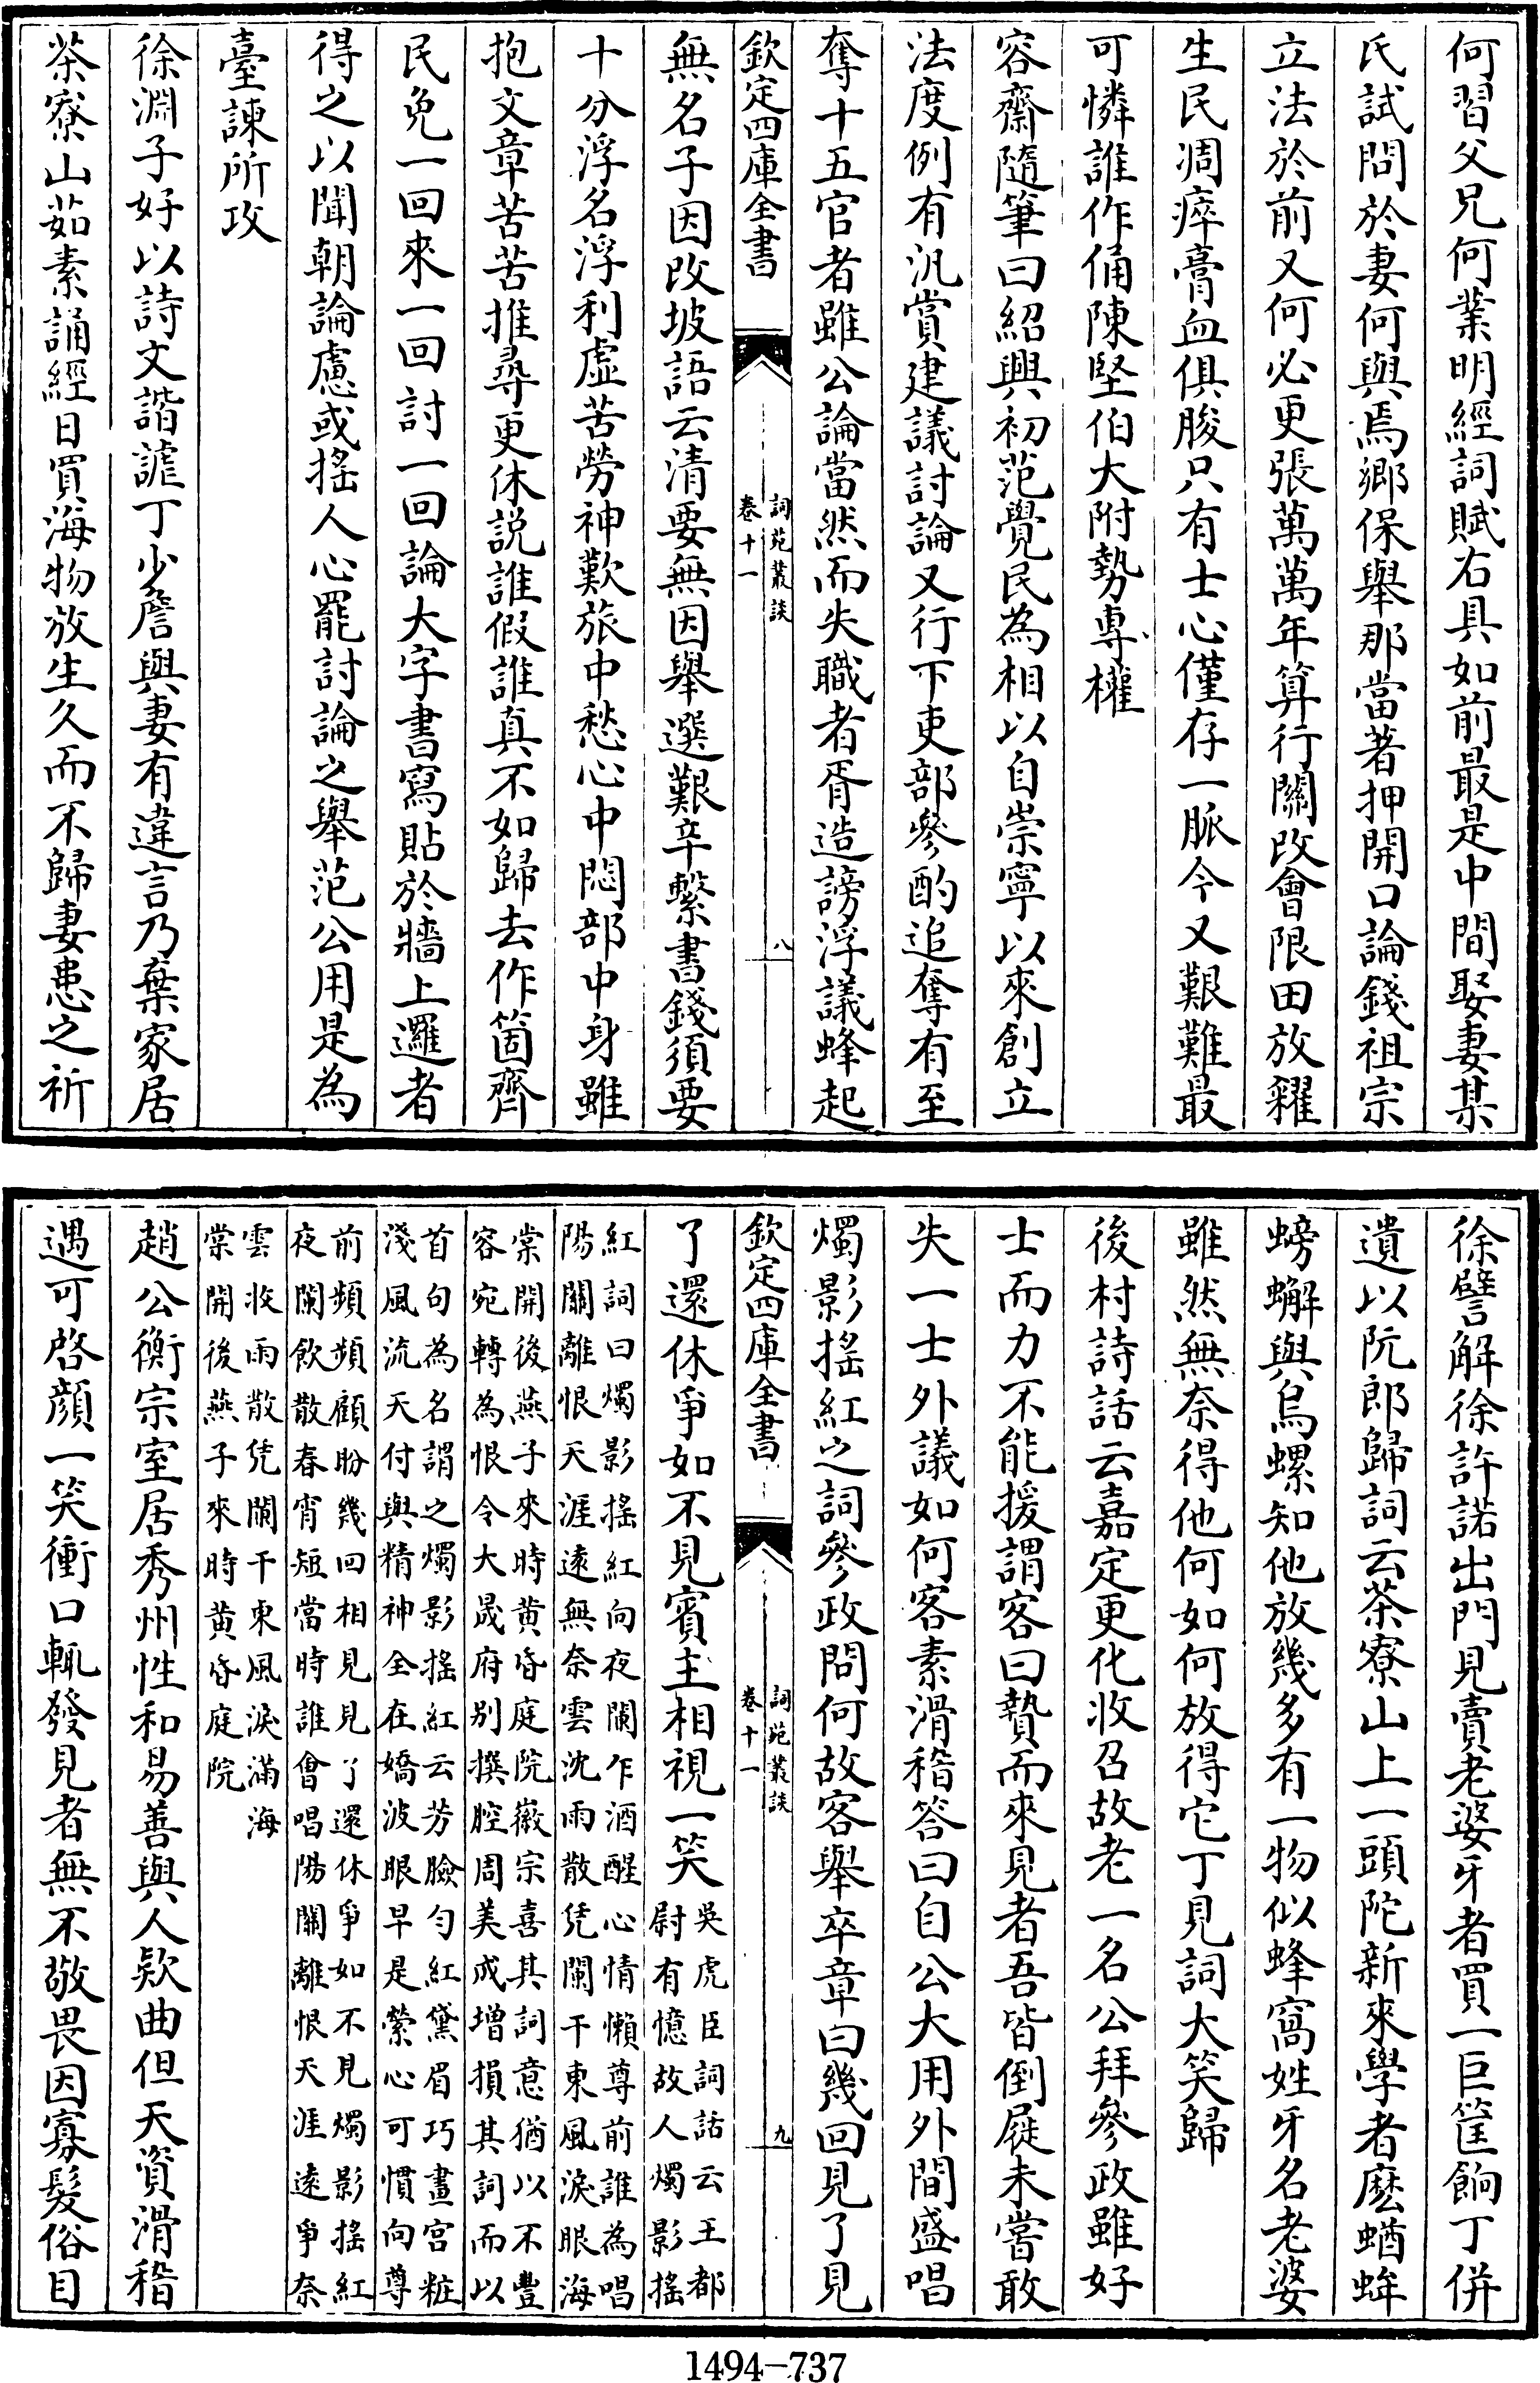 何習父兄何業明經詞賦右具如前最是中間娶妻某
氏試問於妻何與焉鄉保舉那當著押開口論錢祖宗
立法於前又何必更張萬萬年算行關改會限田放糴
生民凋瘁膏血俱朘只有士心僅存一脈今又艱難最
可憐誰作俑陳堅伯大附勢專權
容齋隨筆曰紹興初范覺民為相以自崇寧以來創立
法度例有汎賞建議討論又行下吏部參酌追奪有至
奪十五官者雖公論當然而失職者胥造謗浮議蜂起
欽定四庫全書
詞苑叢談
卷十一
八
無名子因改坡語云清要無因舉選艱辛繫書錢須要
十分浮名浮利虛苦勞神歎旅中愁心中悶部中身雖
抱文章苦苦推尋更休説誰假誰真不如歸去作箇齊
民免一回來一回討一回論大字書寫貼於牆上邏者
得之以聞朝論慮或搖人心罷討論之舉范公用是為
臺諫所攻
徐淵子好以詩文諧謔丁少詹與妻有違言乃棄家居
茶寮山茹素誦經日買海物放生久而不歸妻患之祈
徐譬解徐許諾出門見賣老婆牙者買一巨筐餉丁併
遺以阮郎歸詞云茶寮山上一頭陀新來學者麽蝤蛑
螃蠏與烏螺知他放幾多有一物似蜂窩姓牙名老婆
雖然無奈得他何如何放得它丁見詞大笑歸
後村詩話云嘉定更化收召故老一名公拜參政雖好
士而力不能援謂客曰贄而來見者吾皆倒屣未嘗敢
失一士外議如何客素滑稽答曰自公大用外間盛唱
燭影搖紅之詞參政問何故客舉卒章曰幾回見了見
欽定四庫全書
詞苑叢談
卷十一
九
了還休爭如不見賓主相視一笑
吳虎臣詞話云王都
尉有憶故人燭影搖
紅詞曰燭影搖紅向夜闌乍酒醒心情懶尊前誰為唱
陽關離恨天涯遠無奈雲沈雨散凭闌干東風淚眼海
棠開後燕子來時黄昏庭院徽宗喜其詞意猶以不豐
容宛轉為恨令大晟府别撰腔周美成増損其詞而以
首句為名謂之燭影搖紅云芳臉勻紅黛眉巧畫宮粧
淺風流天付與精神全在嬌波眼早是縈心可慣向尊
前頻頻顧盼幾回相見見了還休爭如不見燭影搖紅
夜闌飲散春宵短當時誰會唱陽關離恨天涯遠爭奈
雲收雨散凭闌干東風淚滿海
棠開後燕子來時黄昏庭院
趙公衡宗室居秀州性和易善與人欵曲但天資滑稽
遇可啓顔一笑衝口輒發見者無不敬畏因寡髮俗目
1494-737